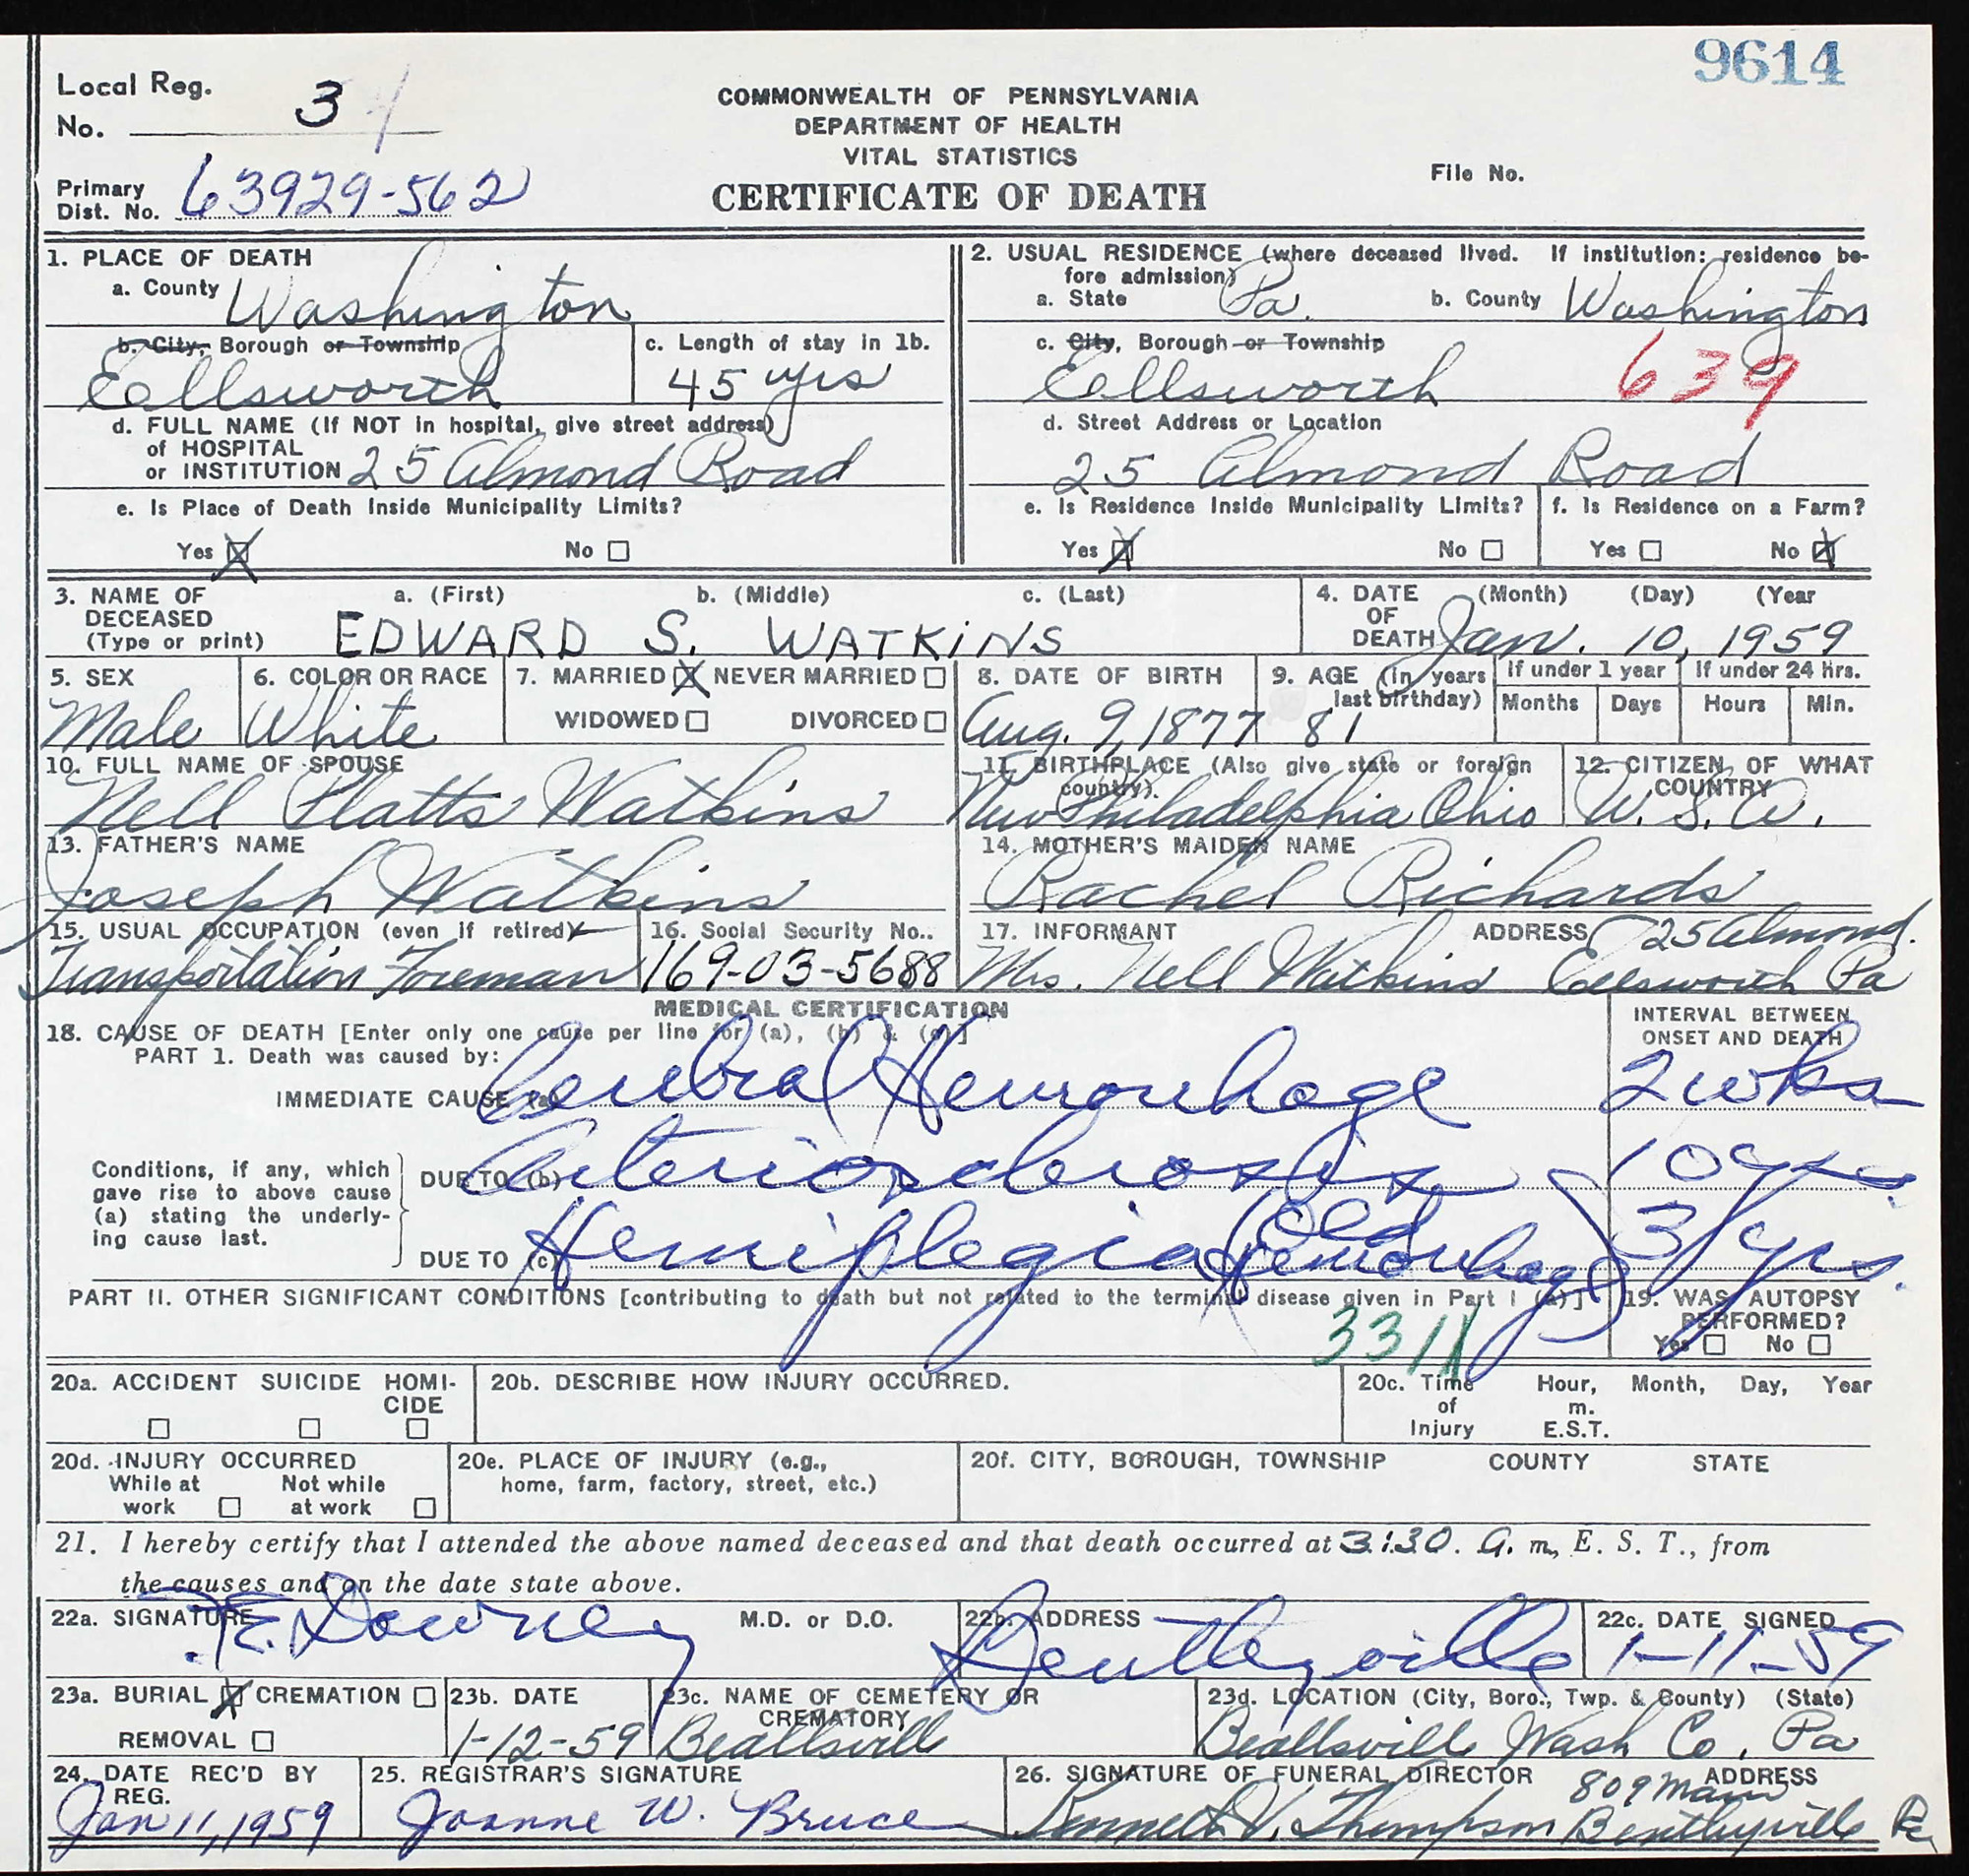 9614
Local Reg.
No. 3
COMMONWEALTH OF PENNSYLVANIA
DEPARTMENT OF HEALTH
VITAL STATISTICS
CERTIFICATE OF DEATH
File No.
Primary
Dist. No. 63929-562
1. PLACE OF DEATH
a. County Washington
b. City, Borough or Township
Ellsworth
c. Length of stay in 1b.
45 yrs
d. FULL NAME (If NOT in hospital, give street address)
of HOSPITAL
or INSTITUTION 25 Almond Road
e. Is Place of Death Inside Municipality Limits?
Yes ☒ No ☐
2. USUAL RESIDENCE (where deceased lived. If institution: residence be-
fore admission)
a. State Pa. b. County Washington
c. City, Borough or Township
Ellsworth 639
d. Street Address or Location
25 Almond Road
e. Is Residence Inside Municipality Limits?
Yes ☒ No ☐
f. Is Residence on a Farm?
Yes ☐ No ☒
3. NAME OF
DECEASED
(Type or print)
a. (First) b. (Middle) c. (Last)
EDWARD S. WATKINS
4. DATE
OF
DEATH
(Month) (Day) (Year
Jan. 10, 1959
5. SEX
Male
6. COLOR OR RACE
White
7. MARRIED ☒ NEVER MARRIED ☐
WIDOWED ☐ DIVORCED ☐
8. DATE OF BIRTH
Aug. 9, 1877
9. AGE (In years
last birthday)
81
If under 1 year
Months Days
If under 24 hrs.
Hours Min.
10. FULL NAME OF SPOUSE
Nell Platts Watkins
11. BIRTHPLACE (Also give state or foreign
country).
New Philadelphia Ohio
12. CITIZEN OF WHAT
COUNTRY
U.S.A.
13. FATHER'S NAME
Joseph Watkins
14. MOTHER'S MAIDEN NAME
Rachel Richards
15. USUAL OCCUPATION (even if retired)
Transportation Foreman
16. Social Security No..
169-03-5688
17. INFORMANT ADDRESS 25 Almond.
Mrs. Nell Watkins Ellsworth Pa
MEDICAL CERTIFICATION
18. CAUSE OF DEATH [Enter only one cause per line for (a), (b) & (c)]
PART 1. Death was caused by:
IMMEDIATE CAUSE (a) Cerebral Hemorrhage
INTERVAL BETWEEN
ONSET AND DEATH
2 wks
Conditions, if any, which
gave rise to above cause
(a) stating the underly-
ing cause last.
DUE TO (b) Arteriosclerosis 10 yrs.
DUE TO (c) Hemiplegia (Old Hemorrhage) 3 yrs.
PART II. OTHER SIGNIFICANT CONDITIONS [contributing to death but not related to the terminal disease given in Part I (a)]
331X
19. WAS AUTOPSY
PERFORMED?
Yes ☐ No ☐
20a. ACCIDENT SUICIDE HOMI-
CIDE
☐ ☐ ☐
20b. DESCRIBE HOW INJURY OCCURRED.
20c. Time
of
Injury
Hour, Month, Day, Year
m.
E.S.T.
20d. INJURY OCCURRED
While at Not while
work ☐ at work ☐
20e. PLACE OF INJURY (e.g.,
home, farm, factory, street, etc.)
20f. CITY, BOROUGH, TOWNSHIP COUNTY STATE
21. I hereby certify that I attended the above named deceased and that death occurred at 3:30. A. m., E. S. T., from
the causes and on the date state above.
22a. SIGNATURE M.D. or D.O.
Downey
22b. ADDRESS
Bentleyville
22c. DATE SIGNED
1-11-59
23a. BURIAL ☒ CREMATION ☐
REMOVAL ☐
23b. DATE
1-12-59
23c. NAME OF CEMETERY OR
CREMATORY
Beallsville
23d. LOCATION (City, Boro., Twp. & County) (State)
Beallsville Wash Co. Pa
24. DATE REC'D BY
REG.
Jan 11, 1959
25. REGISTRAR'S SIGNATURE
Joanne W. Bruce
26. SIGNATURE OF FUNERAL DIRECTOR ADDRESS
809 Main
Kenneth V. Thompson Bentleyville Pa